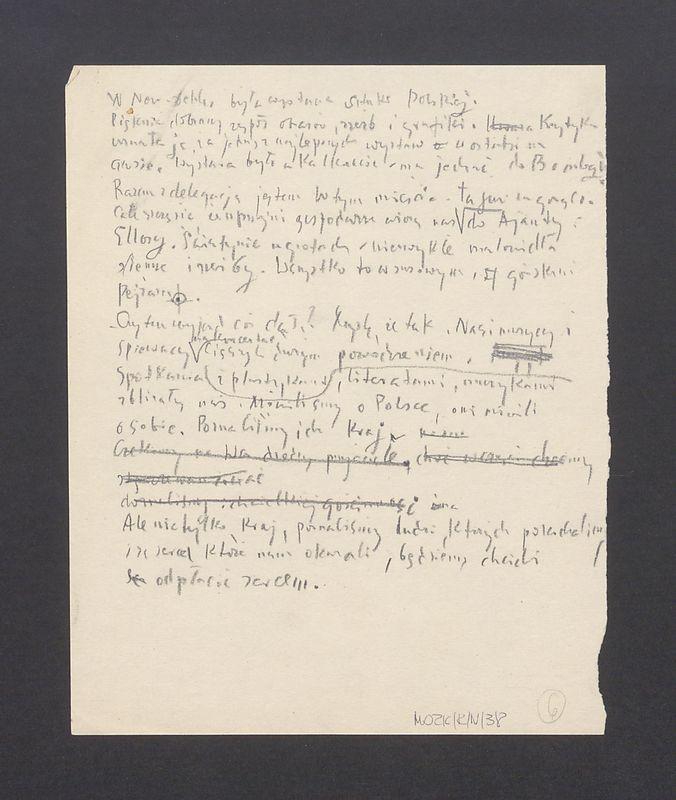 W New Dehli, była wystawa sztuki Polskiej.
Pięknie dobrany zespół obrazów, rzeźb i grafiki. Krytyka
uznała ją za jedną z najlepszych wystaw w ostatnim
czasie. Wystawa była w Kalkucie i ma jechać do Bombaju
Razem z delegacją jestem w tym mieście.
Całe szczęście uprzejmi gospodarze wiozą nas do Ajanty i
Ellory. Świątynie w grotach niezwykłe malowidła
ścienne i rzeźby. Wszystko to w surowym, górskim
pejzażu.
Czy ten wyjazd coś dał? Myślę, że tak. Nasi muzycy i
śpiewacy na koncertach cieszyli się dużym powodzeniem.
Spotkania z plastykami, literatami, muzykami
zbliżały nas. Mówiliśmy o Polsce, oni mówili
o sobie. Poznaliśmy ich kraj,
Ale nie tylko kraj, poznaliśmy ludzi, których pokochaliśmy
i za serce które nam okazali, będziemy chcieli
odpłacić sercem.
MOZK/K/IV/38
6